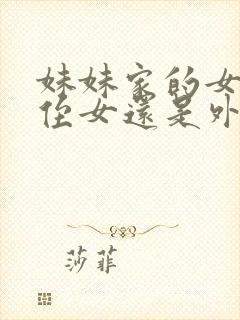 妹妹家的女
侄女還是外
莎菲